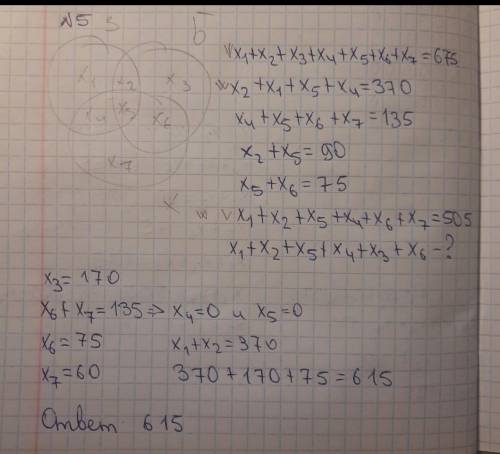 №5 З Б
x₁ x₂ x₃
x₄ x₅ x₆
x₇
К
v x₁+x₂+x₃+x₄+x₅+x₆+x₇=675
w x₂+x₁+x₅+x₄=370
x₄+x₅+x₆+x₇=135
x₂+x₅=90
x₅+x₆=75
w v x₁+x₂+x₅+x₄+x₆+x₇=505
x₁+x₂+x₅+x₄+x₃+x₆-?
x₃=170
x₆+x₇=135⇒ x₄=0 и x₅=0
x₆=75 x₁+x₂=370
x₇=60 370+170+75=615
Ответ 615